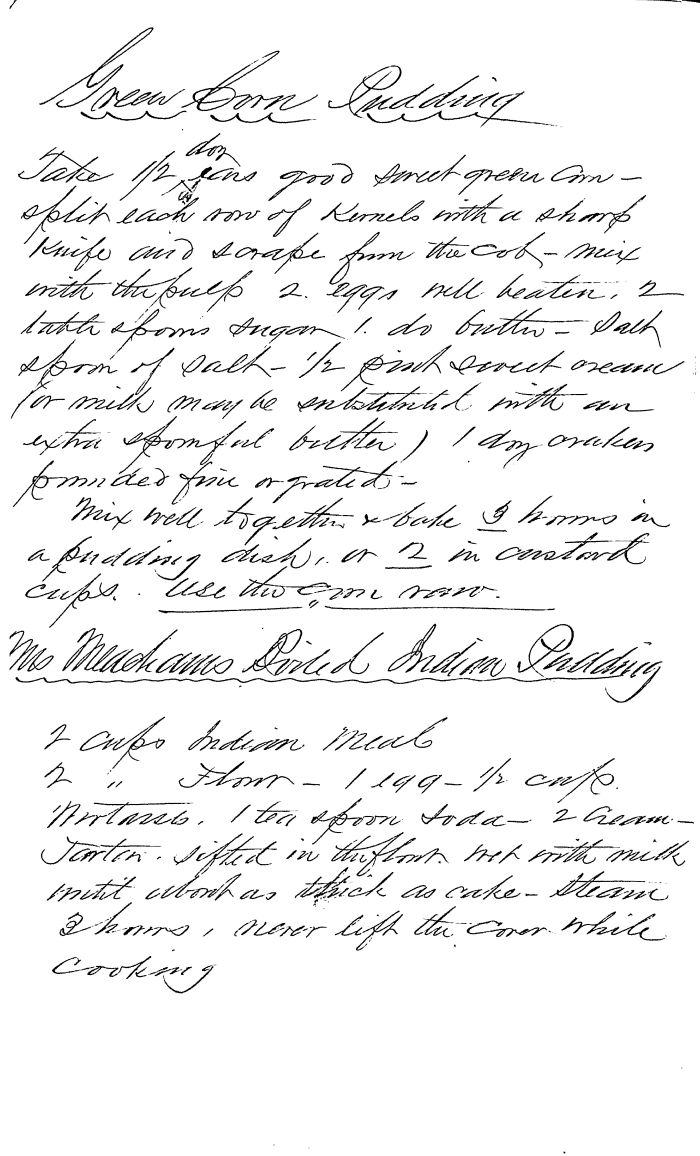 Green Corn Pudding
Take 1/2 doz ears good sweet green corn –
split each row of Kernels with a sharp
Knife and scrape from the cob – mix
with the pulp 2. eggs well beaten. 2
table spoons sugar 1. do butter – Salt
spoon of salt – 1/2 pint sweet cream
(or milk may be substituted with an
extra spoonful butter) 1 doz crakers
pounded fine or grated –
Mix well together & bake 3 hours in
a pudding dish, or 2 in custard
cups. Use the corn raw.
Mrs Meachams Boiled Indian Pudding
2 cups Indian Meal
2 " Flour – 1 egg – 1/2 cup
Molasses. 1 tea spoon Soda – 2 Cream –
Tartar. sifted in the flour. wet with milk
until about as thick as cake – Steam
3 hours, never lift the cover while
cooking